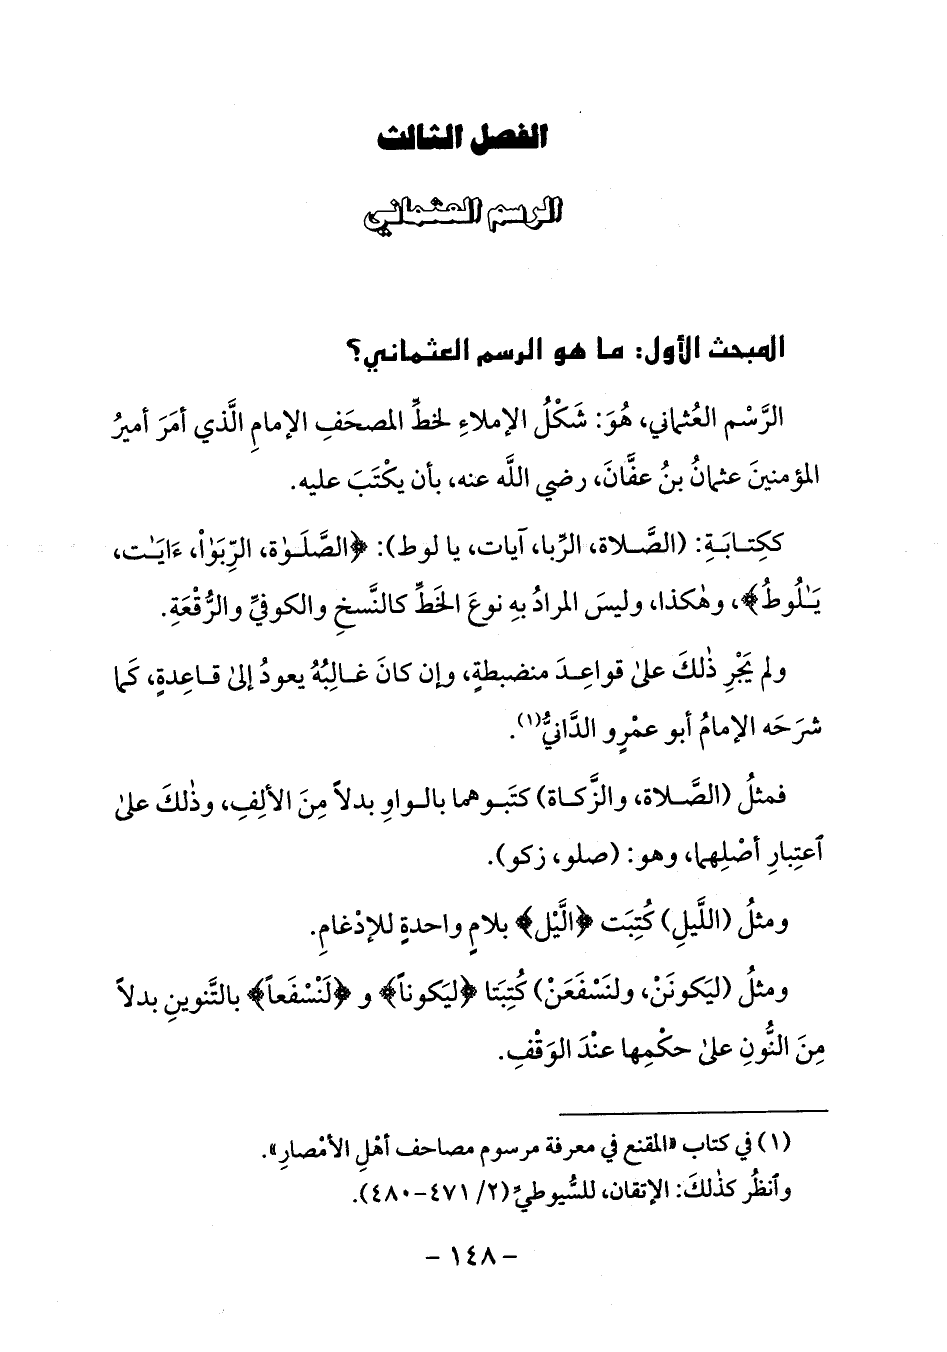 الفصل الثالث
الرسم العثماني
المبحث الأول: ما هو الرسم العثماني؟
الرَّسْم العُثماني، هُوَ: شَكْلُ الإملاءِ لخطِّ المصحَفِ الإمامِ الَّذي أمَرَ أميرُ
المؤمنينَ عثمانُ بنُ عفَّانَ، رضي اللَّه عنه، بأن يكْتَبَ عليه.
ككِتـابَـةِ: (الصَّـلاة، الرِّبا، آيات، يا لوط): ﴿الصَّلَوٰة، الرِّبَوٰاْ، ءَايَـٰت،
يَـٰلُوطُ﴾، وهٰكذا، وليسَ المرادُ بهِ نوعَ الخَطِّ كالنَّسخِ والكوفيِّ والرُّقْعَةِ.
ولم يَجْرِ ذٰلكَ علىٰ قواعِـدَ منضبطةٍ، وإن كانَ غـالِبُهُ يعودُ إلىٰ قـاعِدةٍ، كَما
شرَحَه الإمامُ أبو عمْرٍو الدَّانيُّ(١).
فمثلُ (الصَّـلاة، والزَّكـاة) كتَبـوهما بالـواوِ بدلاً مِنَ الألِفِ، وذٰلكَ علىٰ
ٱعتِبارِ أصْلِهما، وهو: (صلو، زكو).
ومثلُ (اللَّيلِ) كُتِبَت ﴿الَّيْل﴾ بلامٍ واحدةٍ للإدْغامِ.
ومثلُ (ليَكونَنْ، ولنَسْفَعَنْ) كُتِبَتا ﴿ليَكوناً﴾ و ﴿لَنْسْفَعاً﴾ بالتَّنوينِ بدلاً
مِنَ النُّونِ علىٰ حكْمِها عنْدَ الوَقْفِ.
(١) في كتاب «المقنع في معرفة مرسوم مصاحف أهْلِ الأمْصارِ».
وٱنظُر كذٰلكَ: الإتقان، للسُّيوطيِّ (٢/ ٤٧١-٤٨٠).
- ١٤٨ -